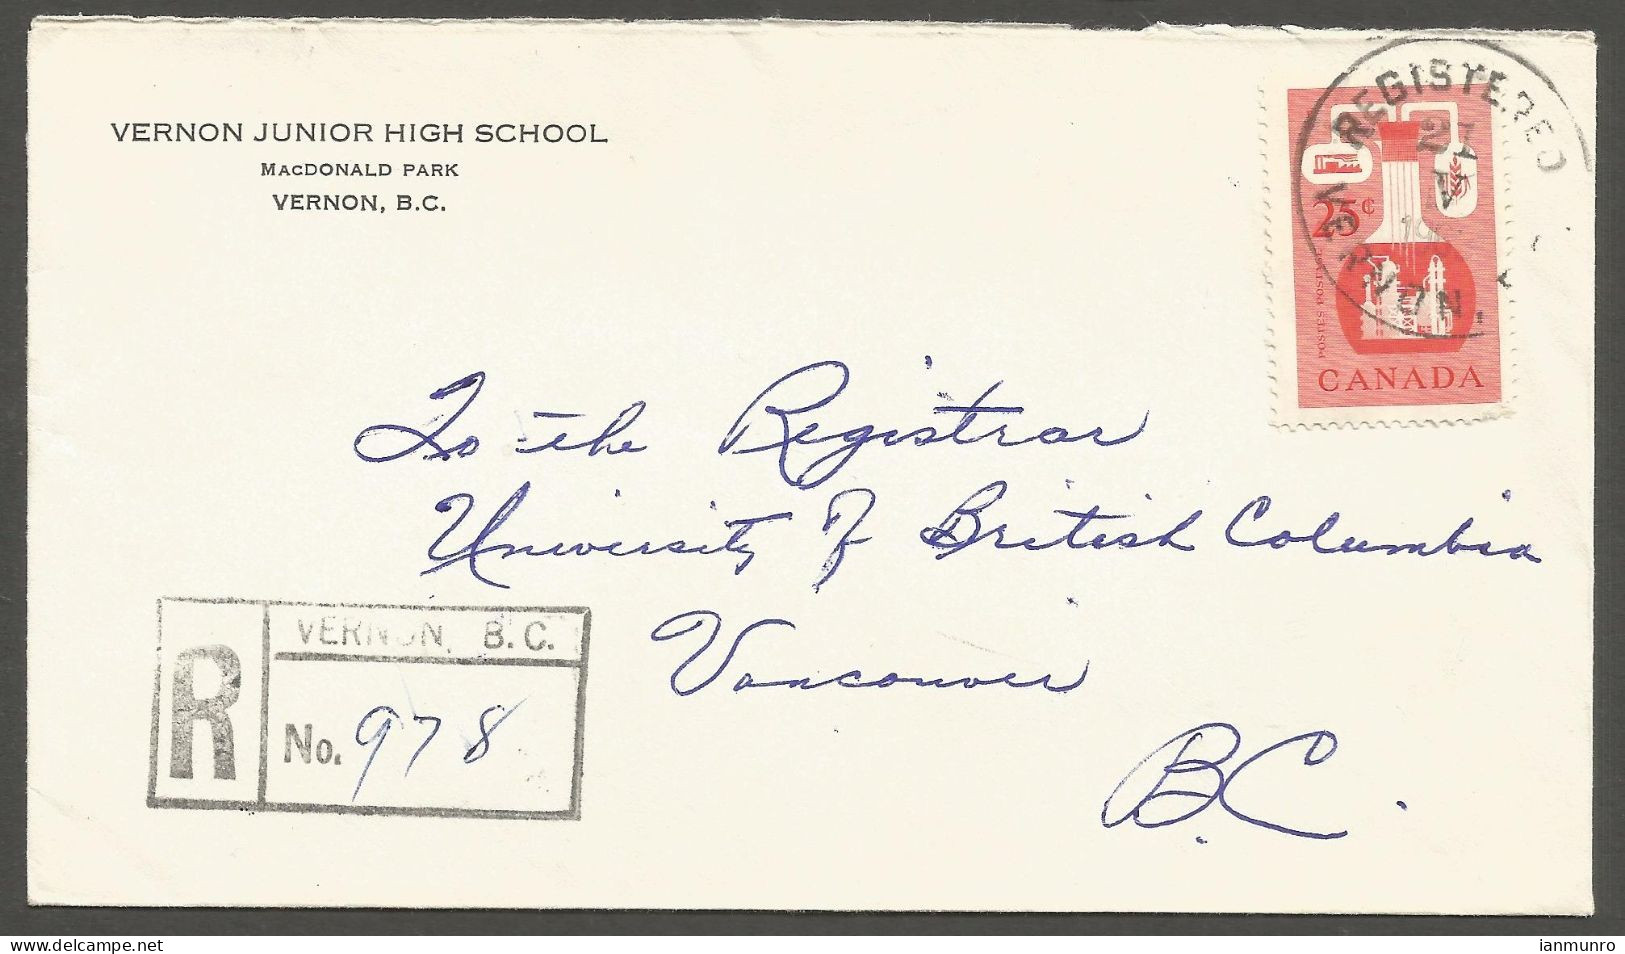 VERNON JUNIOR HIGH SCHOOL
MacDONALD PARK
VERNON, B.C.
REGISTERED
21
VERNON,
25¢
POSTES POSTAGE
CANADA
To the Registrar
University of British Columbia
Vancouver
B.C.
VERNON, B.C.
R
No. 978
ianmunro